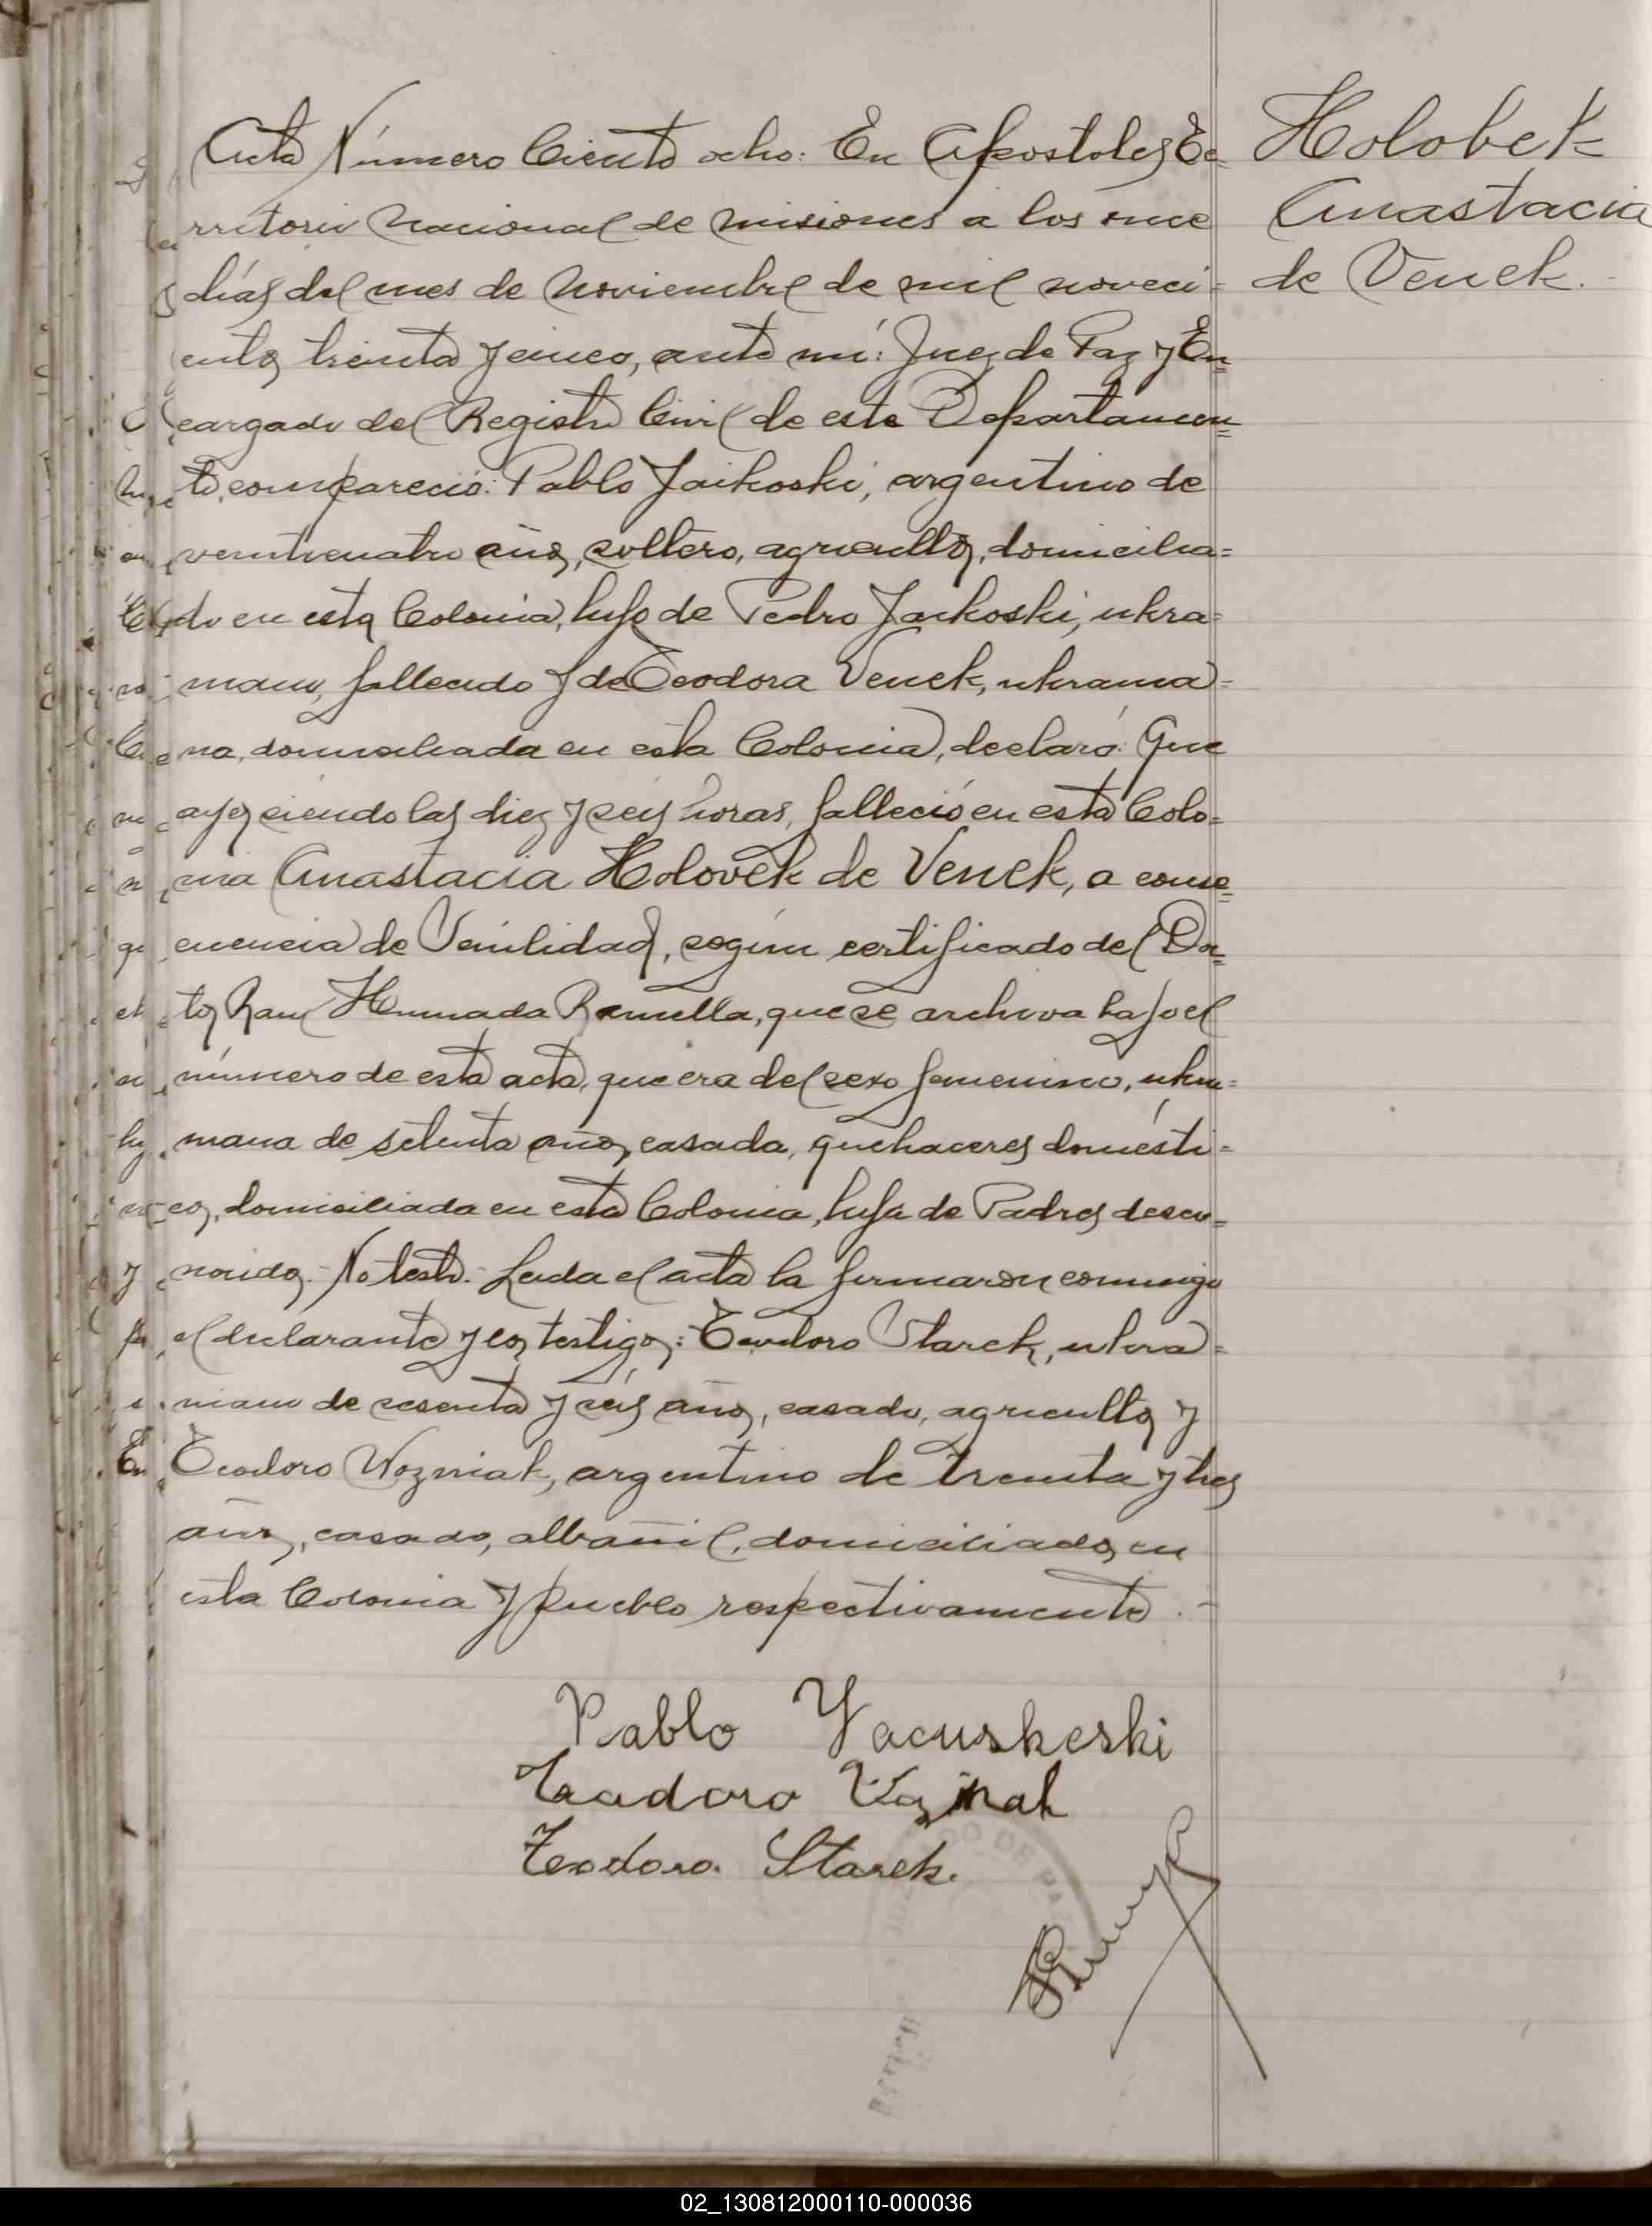 Acta Número Ciento ocho: En Apostoles Te-
rritorio Nacional de Misiones a los once
días del mes de Noviembre de mil noveci-
entos treinta y cinco, ante mí: Juez de Paz y En-
cargado del Registro Civil de este Departamen-
to, compareció: Pablo Jaikoski, argentino de
veinticuatro años, soltero, agricultor, domicilia-
do en esta Colonia, hijo de Pedro Jaikoski, ukra-
niano, fallecido y de Teodora Venek, ukrania-
na, domiciliada en esta Colonia, declaró: Que
ayer siendo las diez y seis horas, falleció en esta Colo-
nia Anastacia Holovek de Venek, a conse-
cuencia de Senilidad, según certificado del Doc-
tor Raul Ramella, que se archiva bajo el
número de esta acta, que era del sexo femenino, ukra-
niana de setenta años, casada, quehaceres domésti-
cos, domiciliada en esta Colonia, hija de Padres desco-
nocidos. No testó. Leida el acta la firmaron conmigo
el declarante y los testigos: Teodoro Starek, ukra-
niano de sesenta y seis años, casado, agricultor y
Teodoro Wozniak, argentino de treinta y tres
años, casado, albañil, domiciliados en
esta Colonia y Pueblo respectivamente.-
Pablo Yacuskeski
Teodoro
Teodoro Starek.
Holobek
Anastacia
de Venek.
02_130812000110-000036